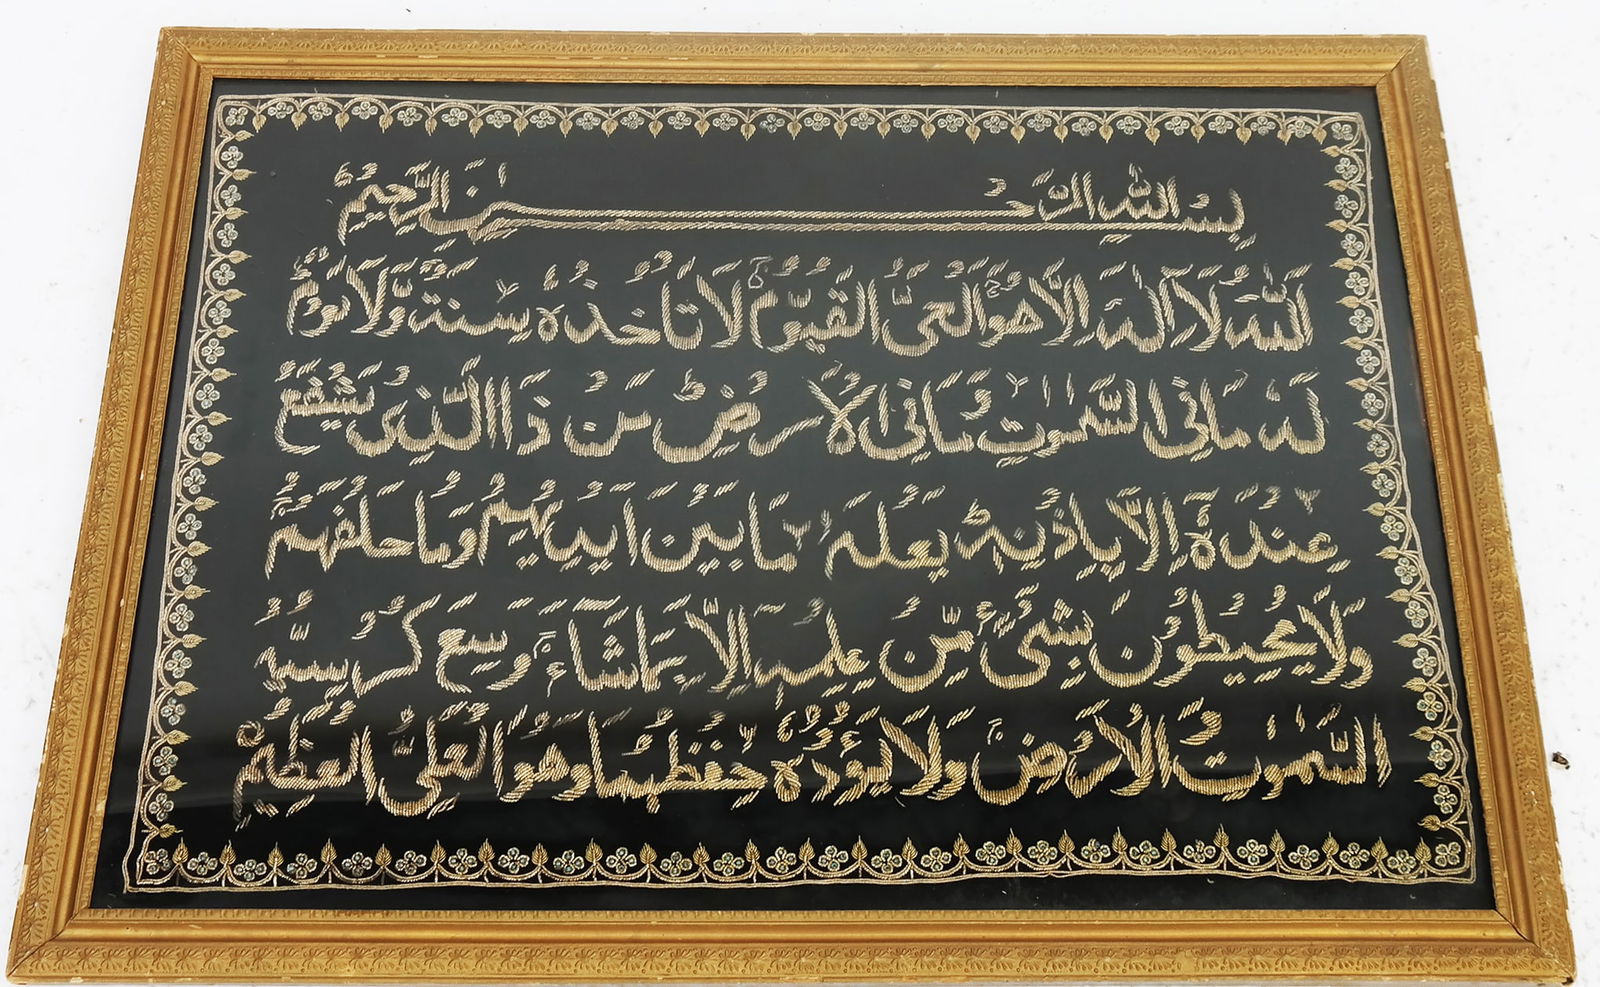 بِسْمِ اللهِ الرَّحْمٰنِ الرَّحِيْمِ
اَللّٰهُ لَاۤ اِلٰهَ اِلَّا هُوَ الْحَیُّ الْقَیُّوْمُ لَا تَاْخُذُهٗ سِنَةٌ وَّلَا نَوْمٌ
لَهٗ مَا فِی السَّمٰوٰتِ وَمَا فِی الْاَرْضِ مَنْ ذَا الَّذِیْ یَشْفَعُ
عِنْدَهٗۤ اِلَّا بِاِذْنِهٖ یَعْلَمُ مَا بَیْنَ اَیْدِیْهِمْ وَمَا خَلْفَهُمْ
وَلَا یُحِیْطُوْنَ بِشَیْءٍ مِّنْ عِلْمِهٖۤ اِلَّا بِمَا شَآءَ وَسِعَ كُرْسِیُّهُ
السَّمٰوٰتِ وَالْاَرْضَ وَلَا یَؤُدُهٗ حِفْظُهُمَا وَهُوَ الْعَلِیُّ الْعَظِیْمُ